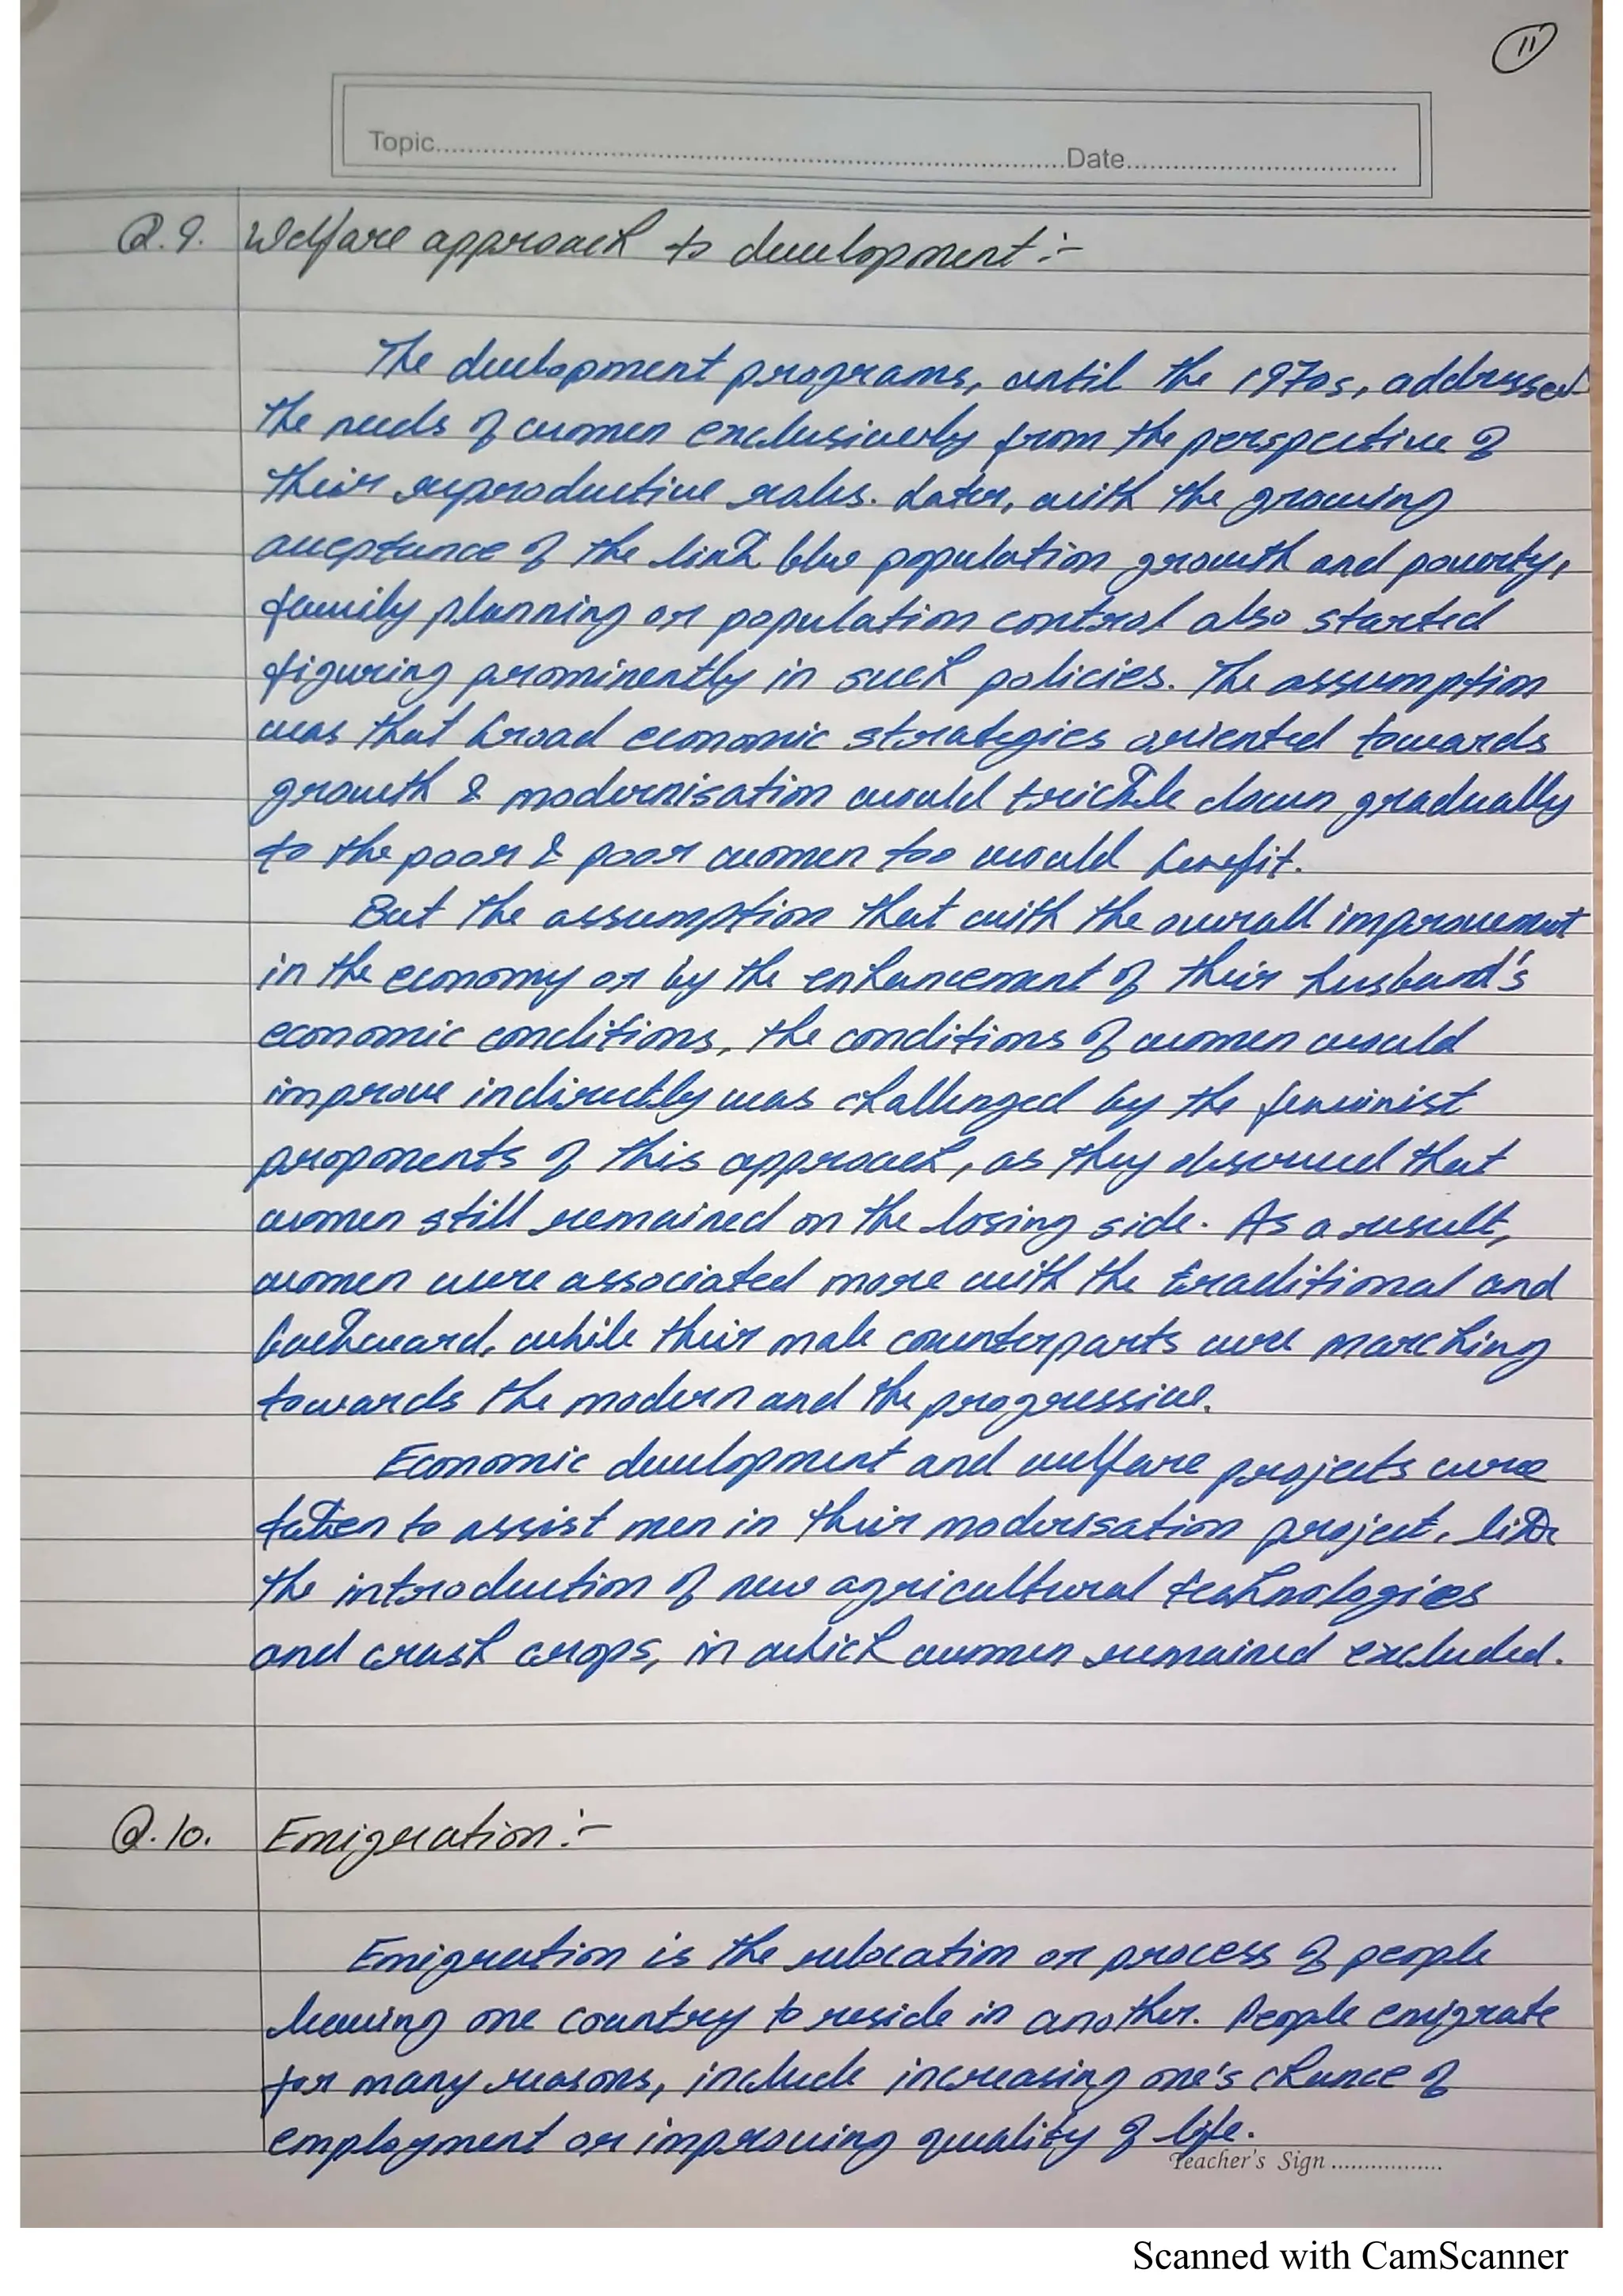 11
Topic..........Date..........
Q.9. Welfare approach to development :-
The development programs, until the 1970s, addressed
the needs of women exclusively from the perspective of
their reproductive roles. Later, with the growing
acceptance of the link b/w population growth and poverty,
family planning or population control also started
figuring prominently in such policies. The assumption
was that broad economic strategies oriented towards
growth & modernisation would trickle down gradually
to the poor & poor women too would benefit.
But the assumption that with the overall improvement
in the economy or by the enhancement of their husband's
economic conditions, the conditions of women would
improve indirectly was challenged by the feminist
proponents of this approach, as they observed that
women still remained on the losing side. As a result,
women were associated more with the traditional and
backward, while their male counterparts were marching
towards the modern and the progressive.
Economic development and welfare projects were
taken to assist men in their moderisation project, like
the introduction of new agricultural technologies
and crash crops, in which women remained excluded.
Q.10. Emigration :-
Emigration is the relocation or process of people
leaving one country to reside in another. People emigrate
for many reasons, include increasing one's chance of
employment or improving quality of life.
Teacher's Sign ..........
Scanned with CamScanner